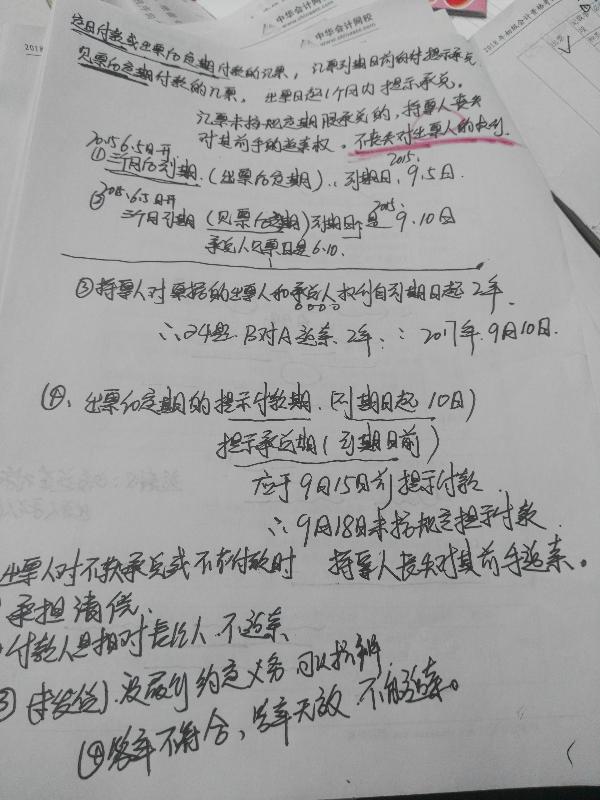 中华会计网校
www.chinaacc.com
中华会计网校
www.chinaacc.com
定日付款或出票后定期付款的汇票，汇票到期日前向付提示承兑
见票后定期付款的汇票，出票日起1个月内提示承兑.
汇票未按规定期限承兑的,持票人丧失
对其前手的追索权.不丧失对出票人的权利.
2015.6.5日开
①三个月后到期.(出票后定期)∴到期日.2015.9.5日.
②2015.6.5日开
三个月到期(见票后定期)到期日是2015.9.10日
承兑人见票日是6.10.
③持票人对票据的出票人和承兑人权利自到期日起2年.
∴24题.B对A追索.2年.∴2017年.9月10日.
④、出票后定期的提示付款期.(到期日起10日)
提示承兑期(到期日前)
应于9月15日前提示付款
∴9月18日未按规定提示付款.
出票人对不获承兑或不获付款时 持票人丧失对其前手追索。
承担清偿.
付款人是相对责任人 不追索
③ 没履行约定义务可以抗辩
④ 不符合, 无效 不能追索。